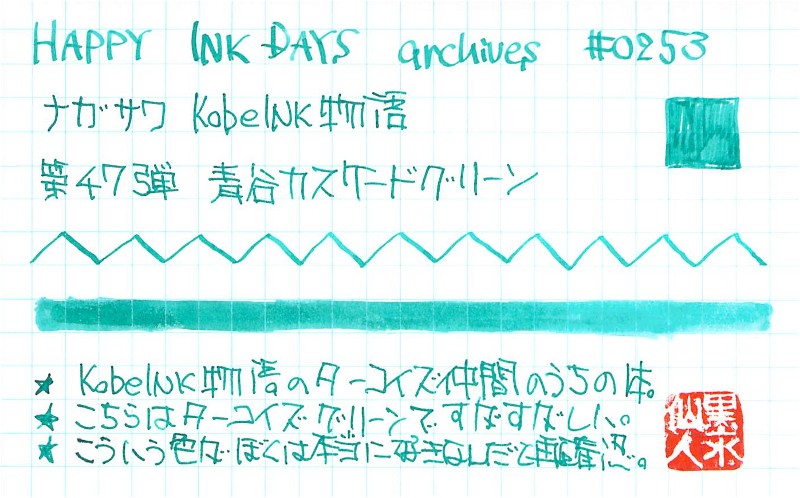 HAPPY INK DAYS archives #0253
ナガサワ KobeINK物語
第47弾 青谷カスケードグリーン
★ KobeINK物語のターコイズ仲間のうちの1本。
★ こちらはターコイズグリーンですがすがしい。
★ こういう色がぼくは本当に好きなんだと再確認。
黒水仙人